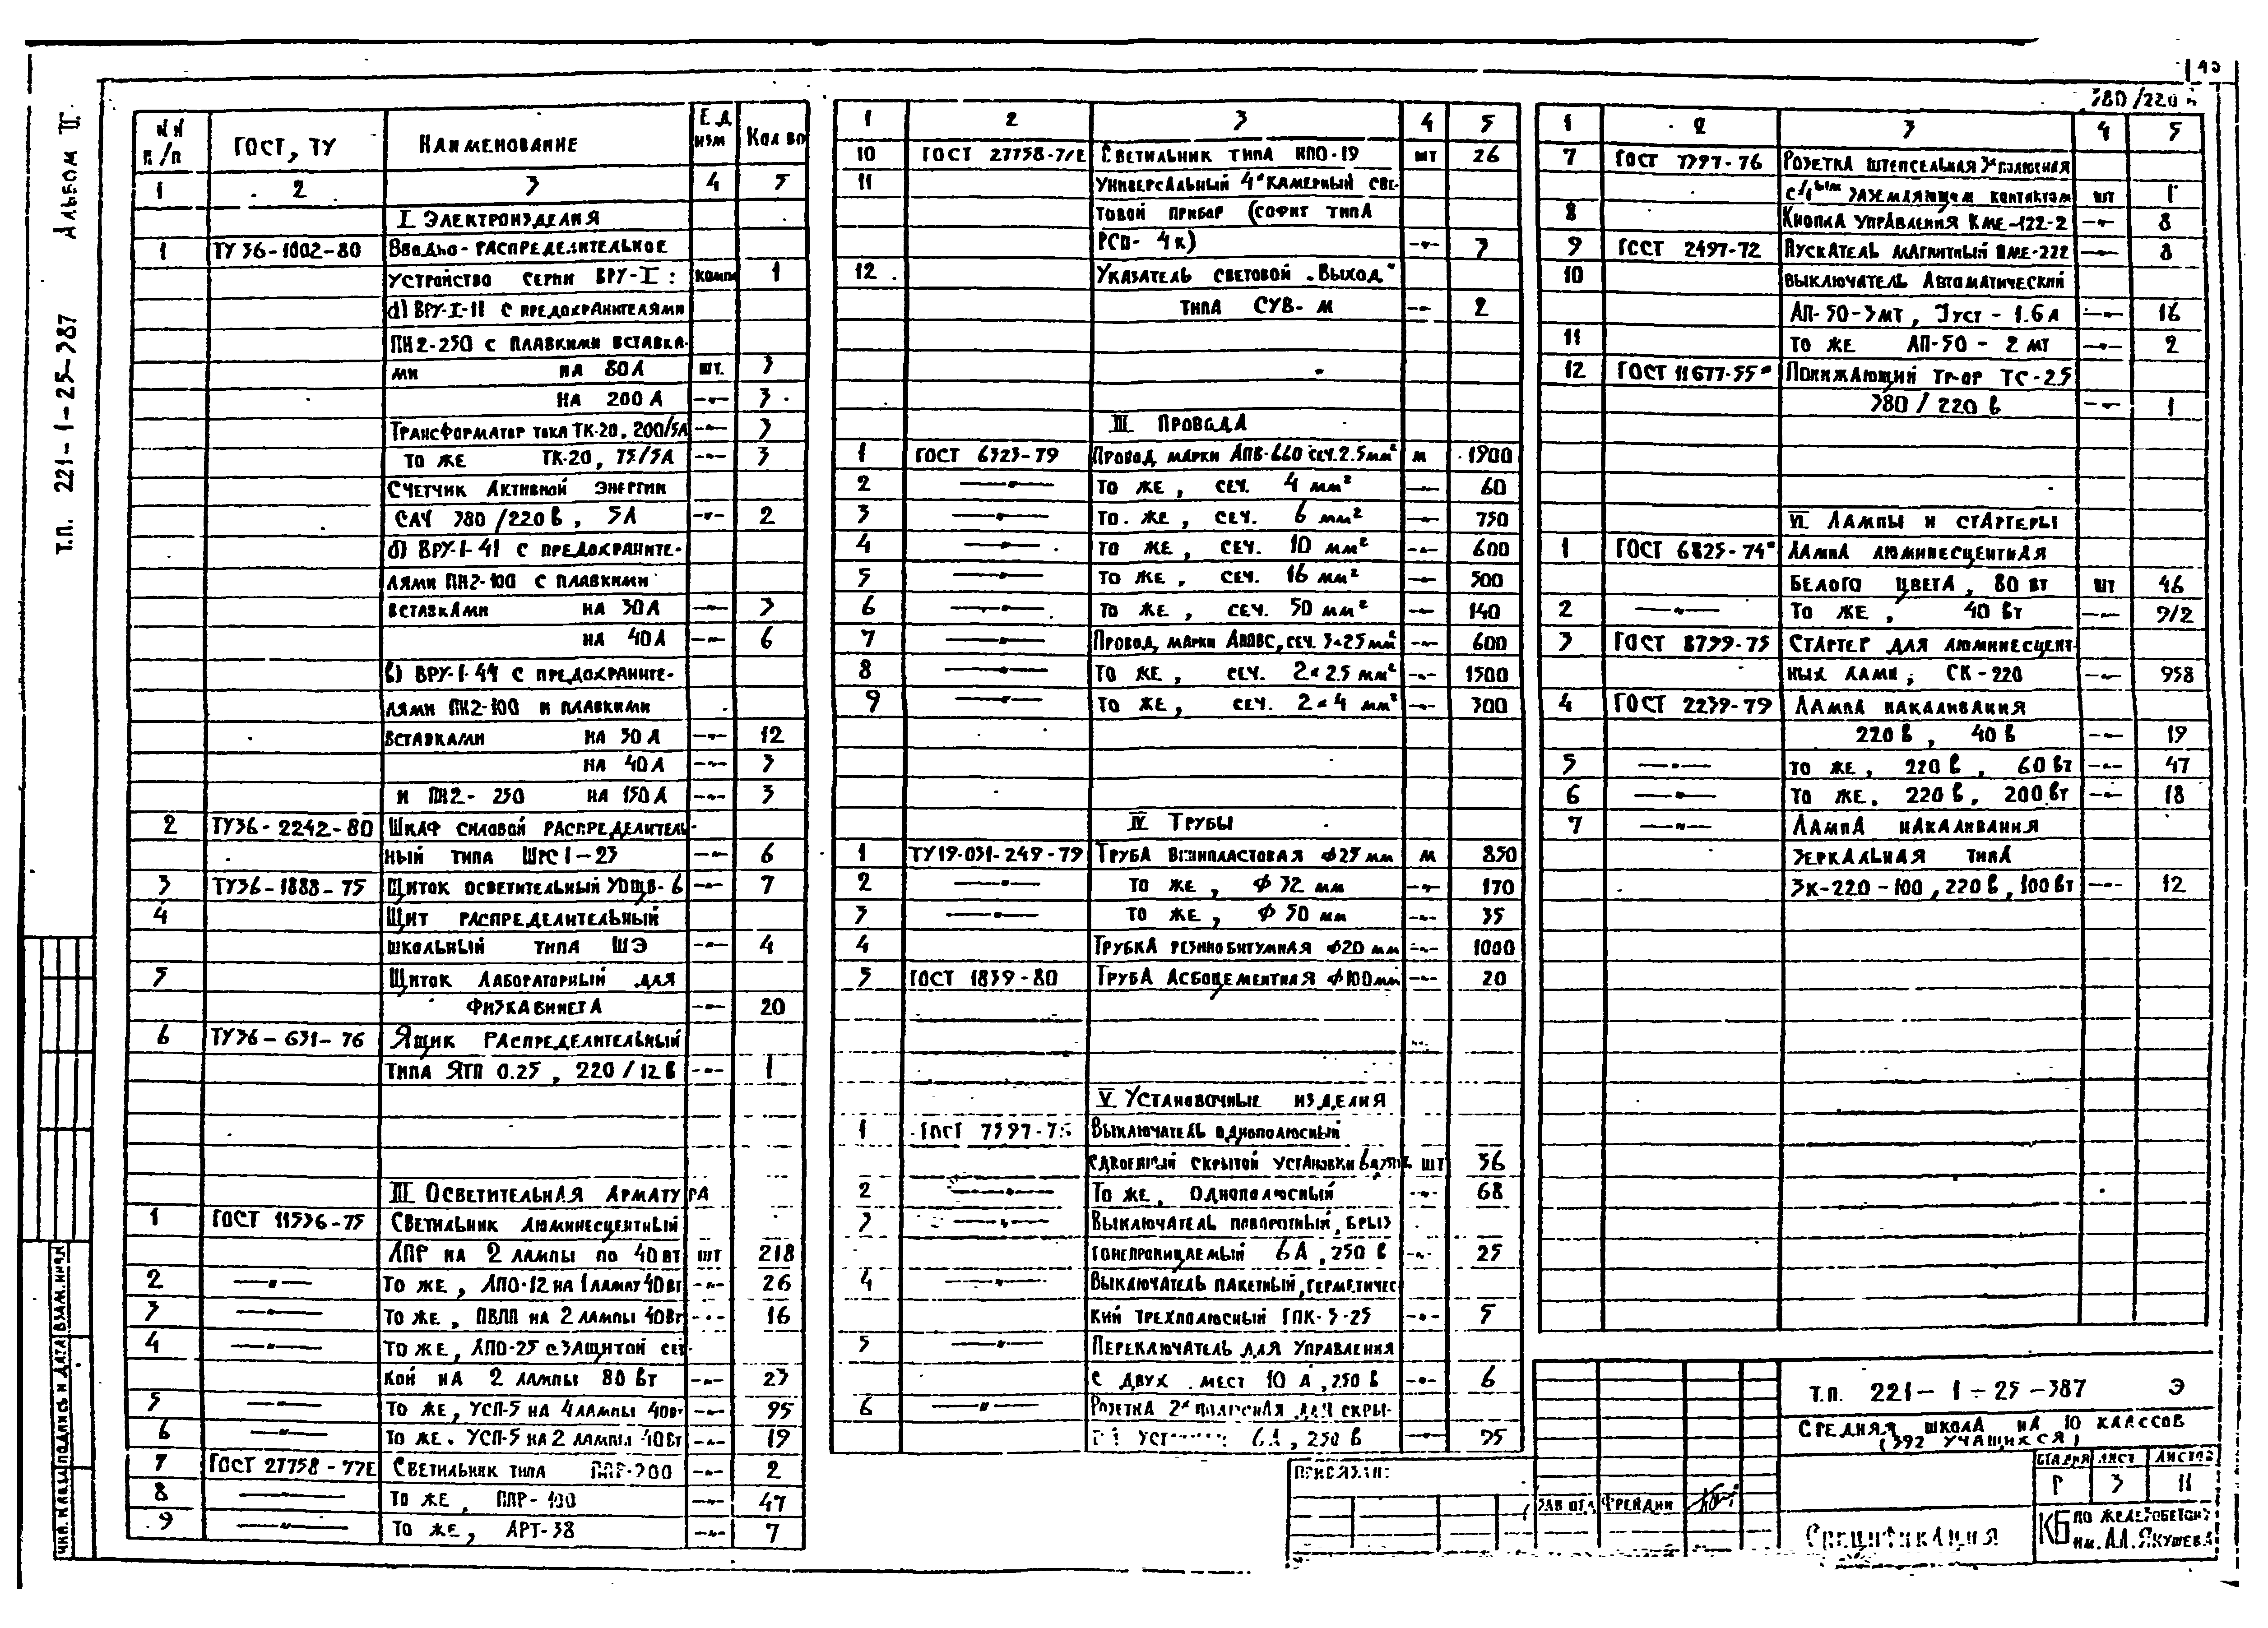 380/220 в
Альбом II
Т.П. 221-1-25-387
NN п/п ГОСТ, ТУ Наименование Ед изм Кол во
1 2 3 4 5
I Электроизделия
1 ТУ 36-1002-80 Вводно-распределительное
устройство серии ВРУ-I: комп 1
а) ВРУ-I-11 с предохранителями
ПН2-250 с плавкими вставка-
ми на 80А шт. 3
на 200А -"- 3
Трансформатор тока ТК-20, 200/5А -"- 3
то же ТК-20, 75/5А -"- 3
Счетчик активной энергии
САЧ 380/220в, 5А -"- 2
б) ВРУ-I-41 с предохраните-
лями ПН2-100 с плавкими
вставками на 30А -"- 3
на 40А -"- 6
в) ВРУ-I-44 с предохраните-
лями ПН2-100 и плавкими
вставками на 30А -"- 12
на 40А -"- 3
и ПН2-250 на 150А -"- 3
2 ТУ36-2242-80 Шкаф силовой распределитель-
ный типа ШРС1-23 -"- 6
3 ТУ36-1888-75 Щиток осветительный УОЩВ-6 -"- 7
4 Щит распределительный
школьный типа ШЭ -"- 4
5 Щиток лабораторный для
физкабинета -"- 20
6 ТУ36-631-76 Ящик распределительный
типа ЯТП 0.25, 220/12в -"- 1
III Осветительная арматура
1 ГОСТ 11536-75 Светильник люминесцентный
ЛПР на 2 лампы по 40вт шт 218
2 -"- То же, ЛПО-12 на 1 лампу 40вт -"- 26
3 -"- То же, ПВЛП на 2 лампы 40вт -"- 16
4 -"- То же, ЛПО-25 с защитой сет-
кой на 2 лампы 80 вт -"- 23
5 -"- То же, УСП-5 на 4 лампы 40вт -"- 95
6 -"- То же, УСП-5 на 2 лампы 40вт -"- 19
7 ГОСТ 27758-77Е Светильник типа ППР-200 -"- 2
8 -"- То же, ППР-100 -"- 47
9 -"- То же, АРТ-38 -"- 7
1 2 3 4 5
10 ГОСТ 27758-77Е Светильник типа НПО-19 шт 26
11 Универсальный 4х камерный све-
товой прибор (софит типа
РСП-4к) -"- 3
12 Указатель световой "Выход"
типа СУВ-м -"- 2
III Провода
1 ГОСТ 6323-79 Провод марки АПВ-660 сеч. 2.5мм² м 1900
2 -"- то же, сеч. 4 мм² -"- 60
3 -"- то же, сеч. 6 мм² -"- 750
4 -"- то же, сеч. 10 мм² -"- 600
5 -"- то же, сеч. 16 мм² -"- 500
6 -"- то же, сеч. 50 мм² -"- 140
7 -"- Провод марки АППВС, сеч. 3×2.5мм² -"- 600
8 -"- то же, сеч. 2×2.5 мм² -"- 1500
9 -"- то же, сеч. 2×4 мм² -"- 300
IV Трубы
1 ТУ19-051-249-79 Труба винипластовая Ф25мм м 850
2 -"- то же, Ф 32 мм -"- 170
3 -"- то же, Ф 50 мм -"- 35
4 Трубка резинобитумная Ф20 мм -"- 1000
5 ГОСТ 1839-80 Труба асбоцементная Ф100мм -"- 20
V Установочные изделия
1 ГОСТ 7397-76 Выключатель однополюсный
сдвоенный скрытой установки шт 36
2 -"- То же, однополюсный -"- 68
3 -"- Выключатель поворотный, брыз
гонепроницаемый 6А, 250 в -"- 25
4 -"- Выключатель пакетный, герметичес-
кий трехполюсный ГПК-3-25 -"- 5
5 -"- Переключатель для управления
с двух мест 10 А, 250 в -"- 6
6 -"- Розетка 2х полюсная для скры-
6А, 250 в -"- 95
1 2 3 4 5
7 ГОСТ 7397-76 Розетка штепсельная 3х полюсная
с 4ым заземляющем контактом шт 1
8 Кнопка управления КМЕ-122-2 -"- 8
9 ГОСТ 2497-72 Пускатель магнитный ПМЕ-222 -"- 8
10 Выключатель автоматический
АП-50-3мт, Jуст - 1.6 А -"- 16
11 то же АП-50-2 мт -"- 2
12 ГОСТ 11677-55* Понижающий тр-ор ТС-2.5
380/220 в -"- 1
VI Лампы и стартеры
1 ГОСТ 6825-74* Лампа люминесцентная
белого цвета, 80 вт шт 46
2 -"- то же, 40 вт -"- 912
3 ГОСТ 8799-75 Стартер для люминесцент-
ных ламп, СК-220 -"- 958
4 ГОСТ 2239-79 Лампа накаливания
220 в, 40 в -"- 19
5 -"- то же, 220 в, 60 вт -"- 47
6 -"- то же, 220 в, 200 вт -"- 18
7 -"- Лампа накаливания
зеркальная типа
ЗК-220-100, 220 в, 100 вт -"- 12
Т.П. 221-1-25-387 Э
Средняя школа на 10 классов
(392 учащихся)
Стадия Лист Листов
Р 3 11
Спецификация
КБ по железобетону
им. А.А. Якушева
Зав отд Фрейдин
Привязан:
Инв. N подл Подпись и дата Взам. инв. N